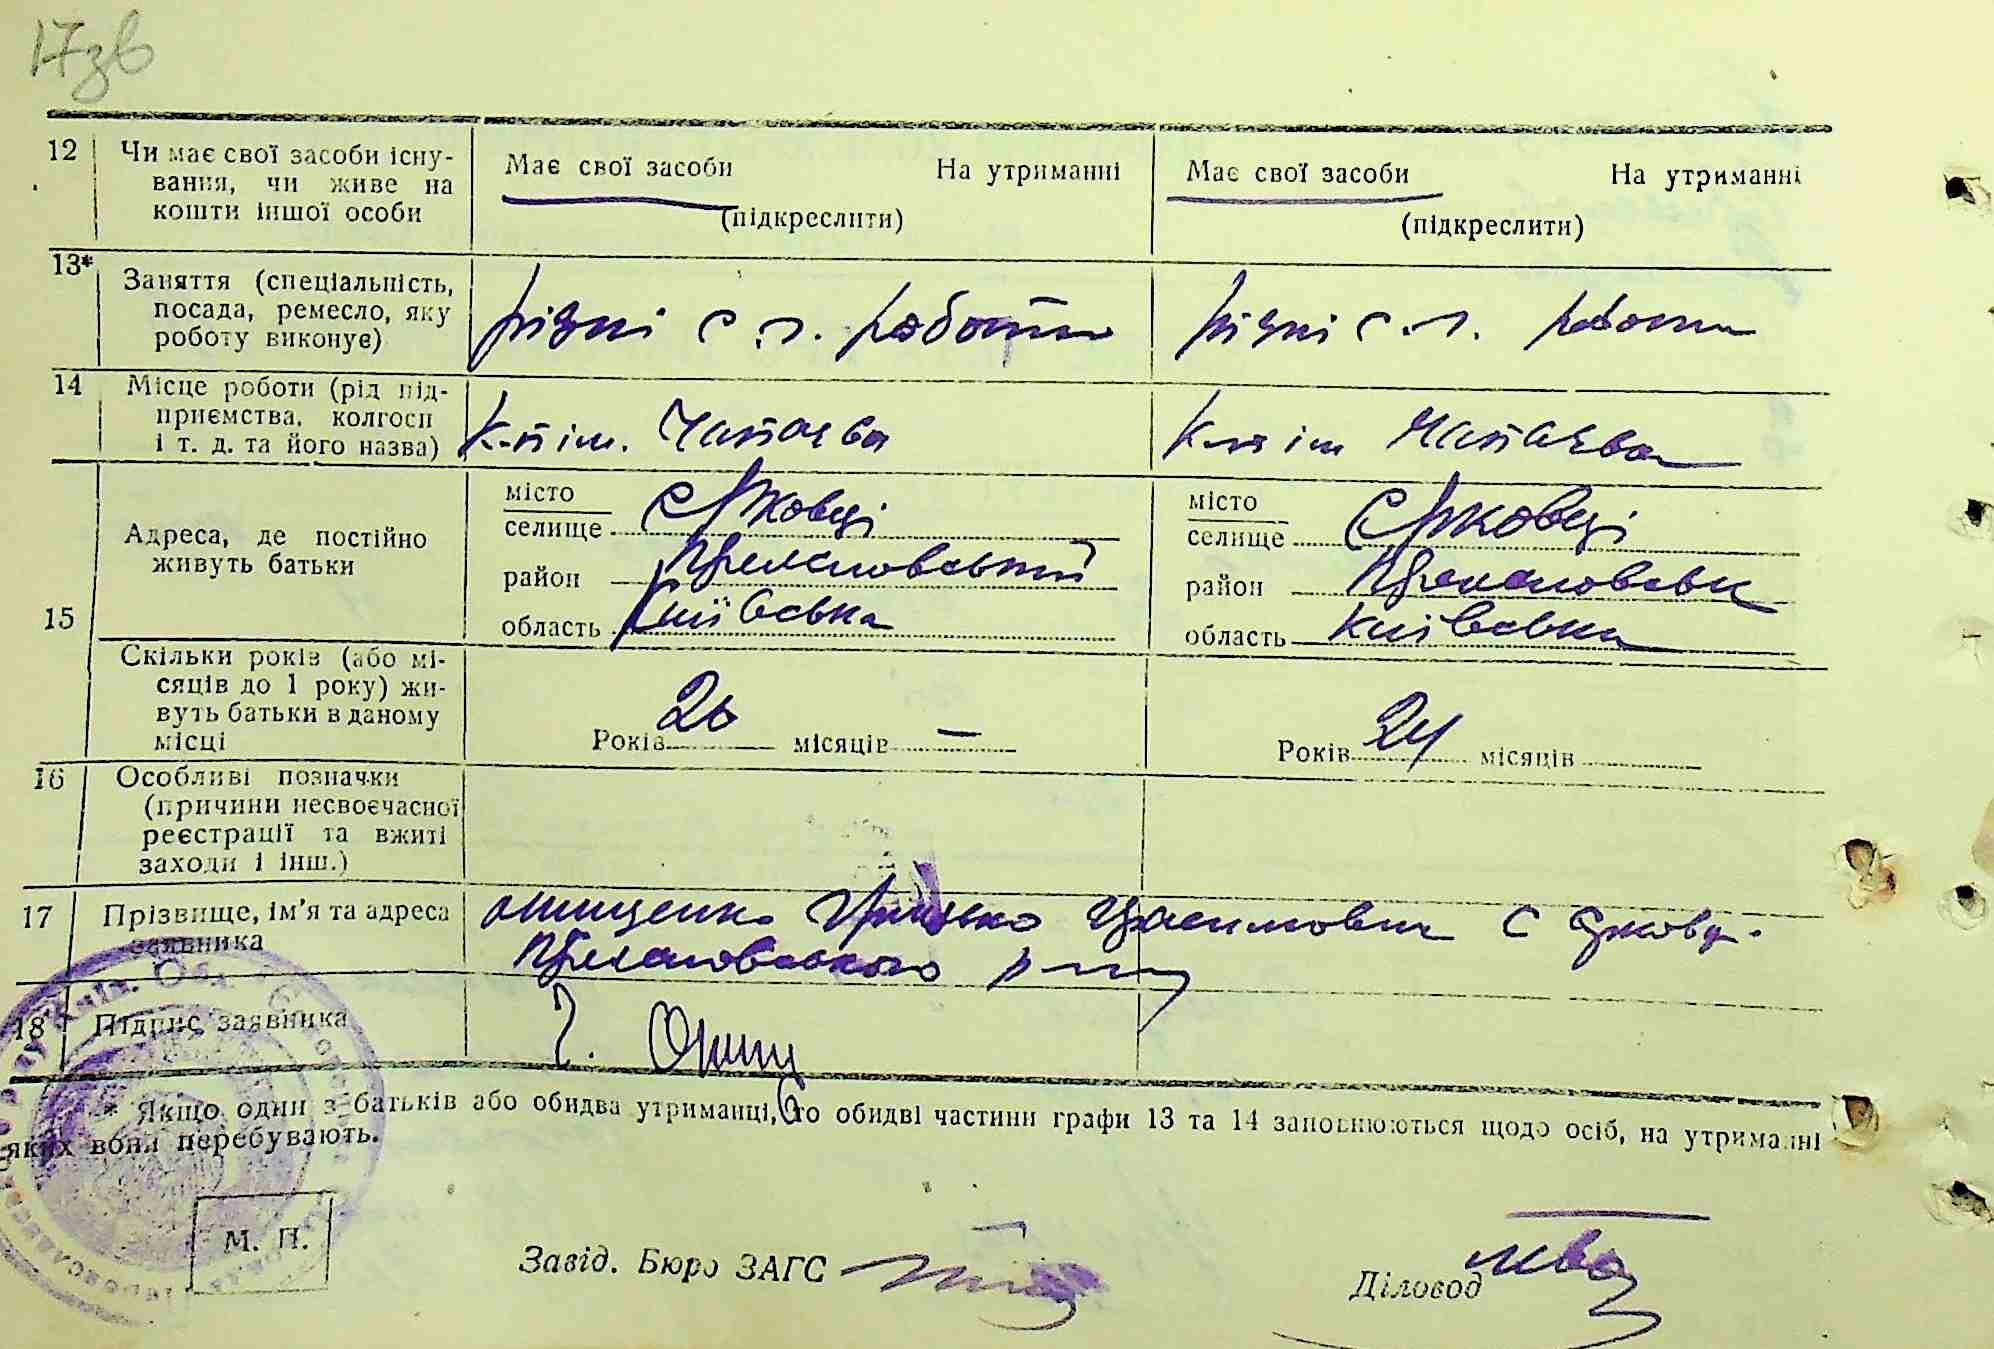 17зв
12 Чи має свої засоби існу-
вання, чи живе на
кошти іншої особи
Має свої засоби На утриманні
(підкреслити)
Має свої засоби На утриманні
(підкреслити)
13* Заняття (спеціальність,
посада, ремесло, яку
роботу виконує)
різні с. г. роботи
різні с. г. роботи
14 Місце роботи (рід під-
приємства, колгосп
і т. д. та його назва)
К-п ім. Чапаєва
К-п ім Чапаєва
15 Адреса, де постійно
живуть батьки
місто
селище с Єрковці
район
область Київська
місто
селище с Єрковці
район
область Київська
Скільки років (або мі-
сяців до 1 року) жи-
вуть батьки в даному
місці
Років 26 місяців —
Років 24 місяців
16 Особливі позначки
(причини несвоєчасної
реєстрації та вжиті
заходи і інш.)
17 Прізвище, ім'я та адреса
заявника
Онищенко Грицько с Єрковці
18 Підпис заявника
Г. Онищ
* Якщо один з батьків або обидва утриманці, то обидві частини графи 13 та 14 заповнюються щодо осіб, на утриманні
яких вони перебувають.
М. П.
Завід. Бюро ЗАГС
Діловод